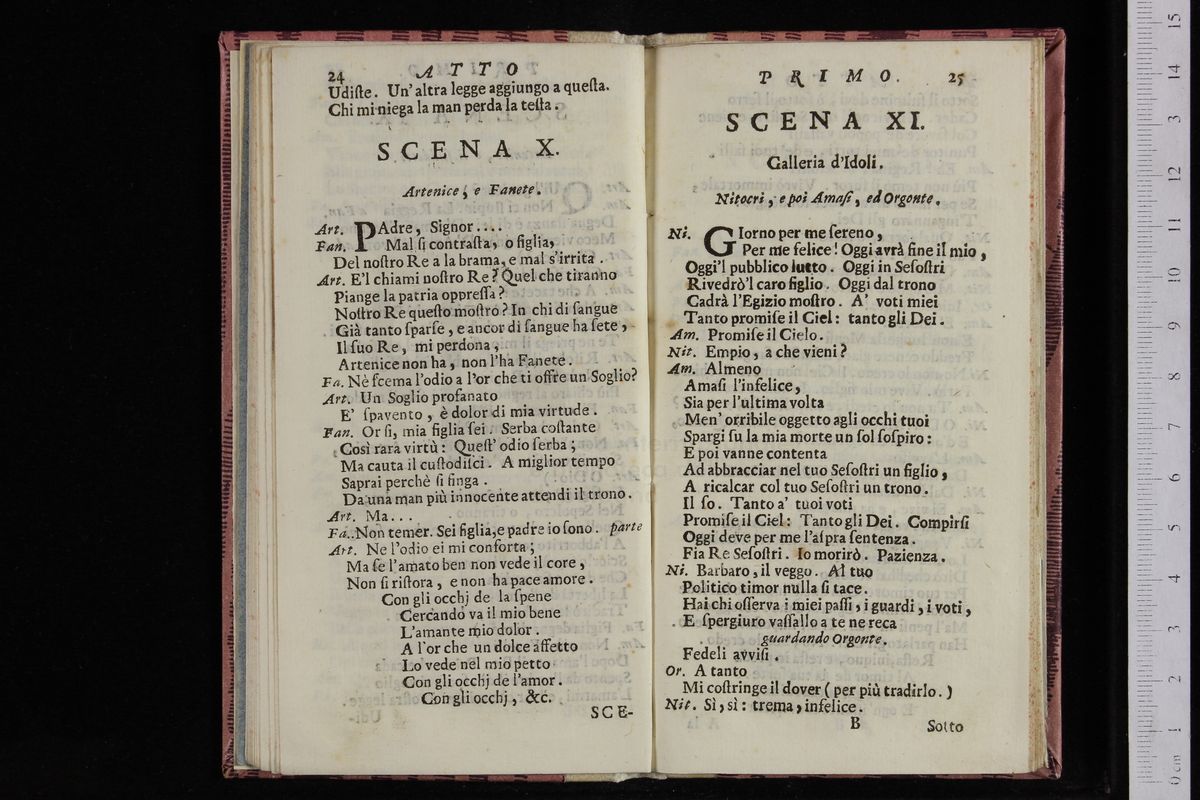 24 ATTO
Udiſte. Un'altra legge aggiungo a queſta.
Chi mi niega la man perda la teſta.
SCENA X.
Artenice, e Fanete.
Art. PAdre, Signor....
Fan. Mal ſi contraſta, o figlia,
Del noſtro Re a la brama, e mal s'irrita.
Art. E'l chiami noſtro Re? Quel che tiranno
Piange la patria oppreſſa?
Noſtro Re queſto moſtro? In chi di ſangue
Già tanto ſparſe, e ancor di ſangue ha ſete,
Il ſuo Re, mi perdona,
Artenice non ha, non l'ha Fanete.
Fa. Nè ſcema l'odio a l'or che ti offre un Soglio?
Art. Un Soglio profanato
E' ſpavento, è dolor di mia virtude.
Fan. Or ſi, mia figlia ſei. Serba coſtante
Così rara virtù: Queſt' odio ſerba;
Ma cauta il cuſtodiſci. A miglior tempo
Saprai perchè ſi finga.
Da una man più innocente attendi il trono.
Art. Ma...
Fa. Non temer. Sei figlia, e padre io ſono. parte
Art. Ne l'odio ei mi conforta;
Ma ſe l'amato ben non vede il core,
Non ſi riſtora, e non ha pace amore.
Con gli occhj de la ſpene
Cercando va il mio bene
L'amante mio dolor.
A l'or che un dolce affetto
Lo vede nel mio petto
Con gli occhj de l'amor.
Con gli occhj, &c.
SCE-
PRIMO. 25
SCENA XI.
Galleria d'Idoli.
Nitocri, e poi Amaſi, ed Orgonte.
Ni. GIorno per me ſereno,
Per me felice! Oggi avrà fine il mio,
Oggi'l pubblico lutto. Oggi in Seſoſtri
Rivedrò'l caro figlio. Oggi dal trono
Cadrà l'Egizio moſtro. A' voti miei
Tanto promiſe il Ciel: tanto gli Dei.
Am. Promiſe il Cielo.
Nit. Empio, a che vieni?
Am. Almeno
Amaſi l'infelice,
Sia per l'ultima volta
Men' orribile oggetto agli occhi tuoi
Spargi ſu la mia morte un ſol ſoſpiro:
E poi vanne contenta
Ad abbracciar nel tuo Seſoſtri un figlio,
A ricalcar col tuo Seſoſtri un trono.
Il ſo. Tanto a' tuoi voti
Promiſe il Ciel: Tanto gli Dei. Compirſi
Oggi deve per me l'aſpra ſentenza.
Fia Re Seſoſtri. Io morirò. Pazienza.
Ni. Barbaro, il veggo. Al tuo
Politico timor nulla ſi tace.
Hai chi oſſerva i miei paſſi, i guardi, i voti,
E ſpergiuro vaſſallo a te ne reca
guardando Orgonte.
Fedeli avviſi.
Or. A tanto
Mi coſtringe il dover (per più tradirlo.)
Nit. Sì, sì: trema, infelice.
B Sotto
15
14
13
12
11
10
9
8
7
6
5
4
3
2
1
0 cm